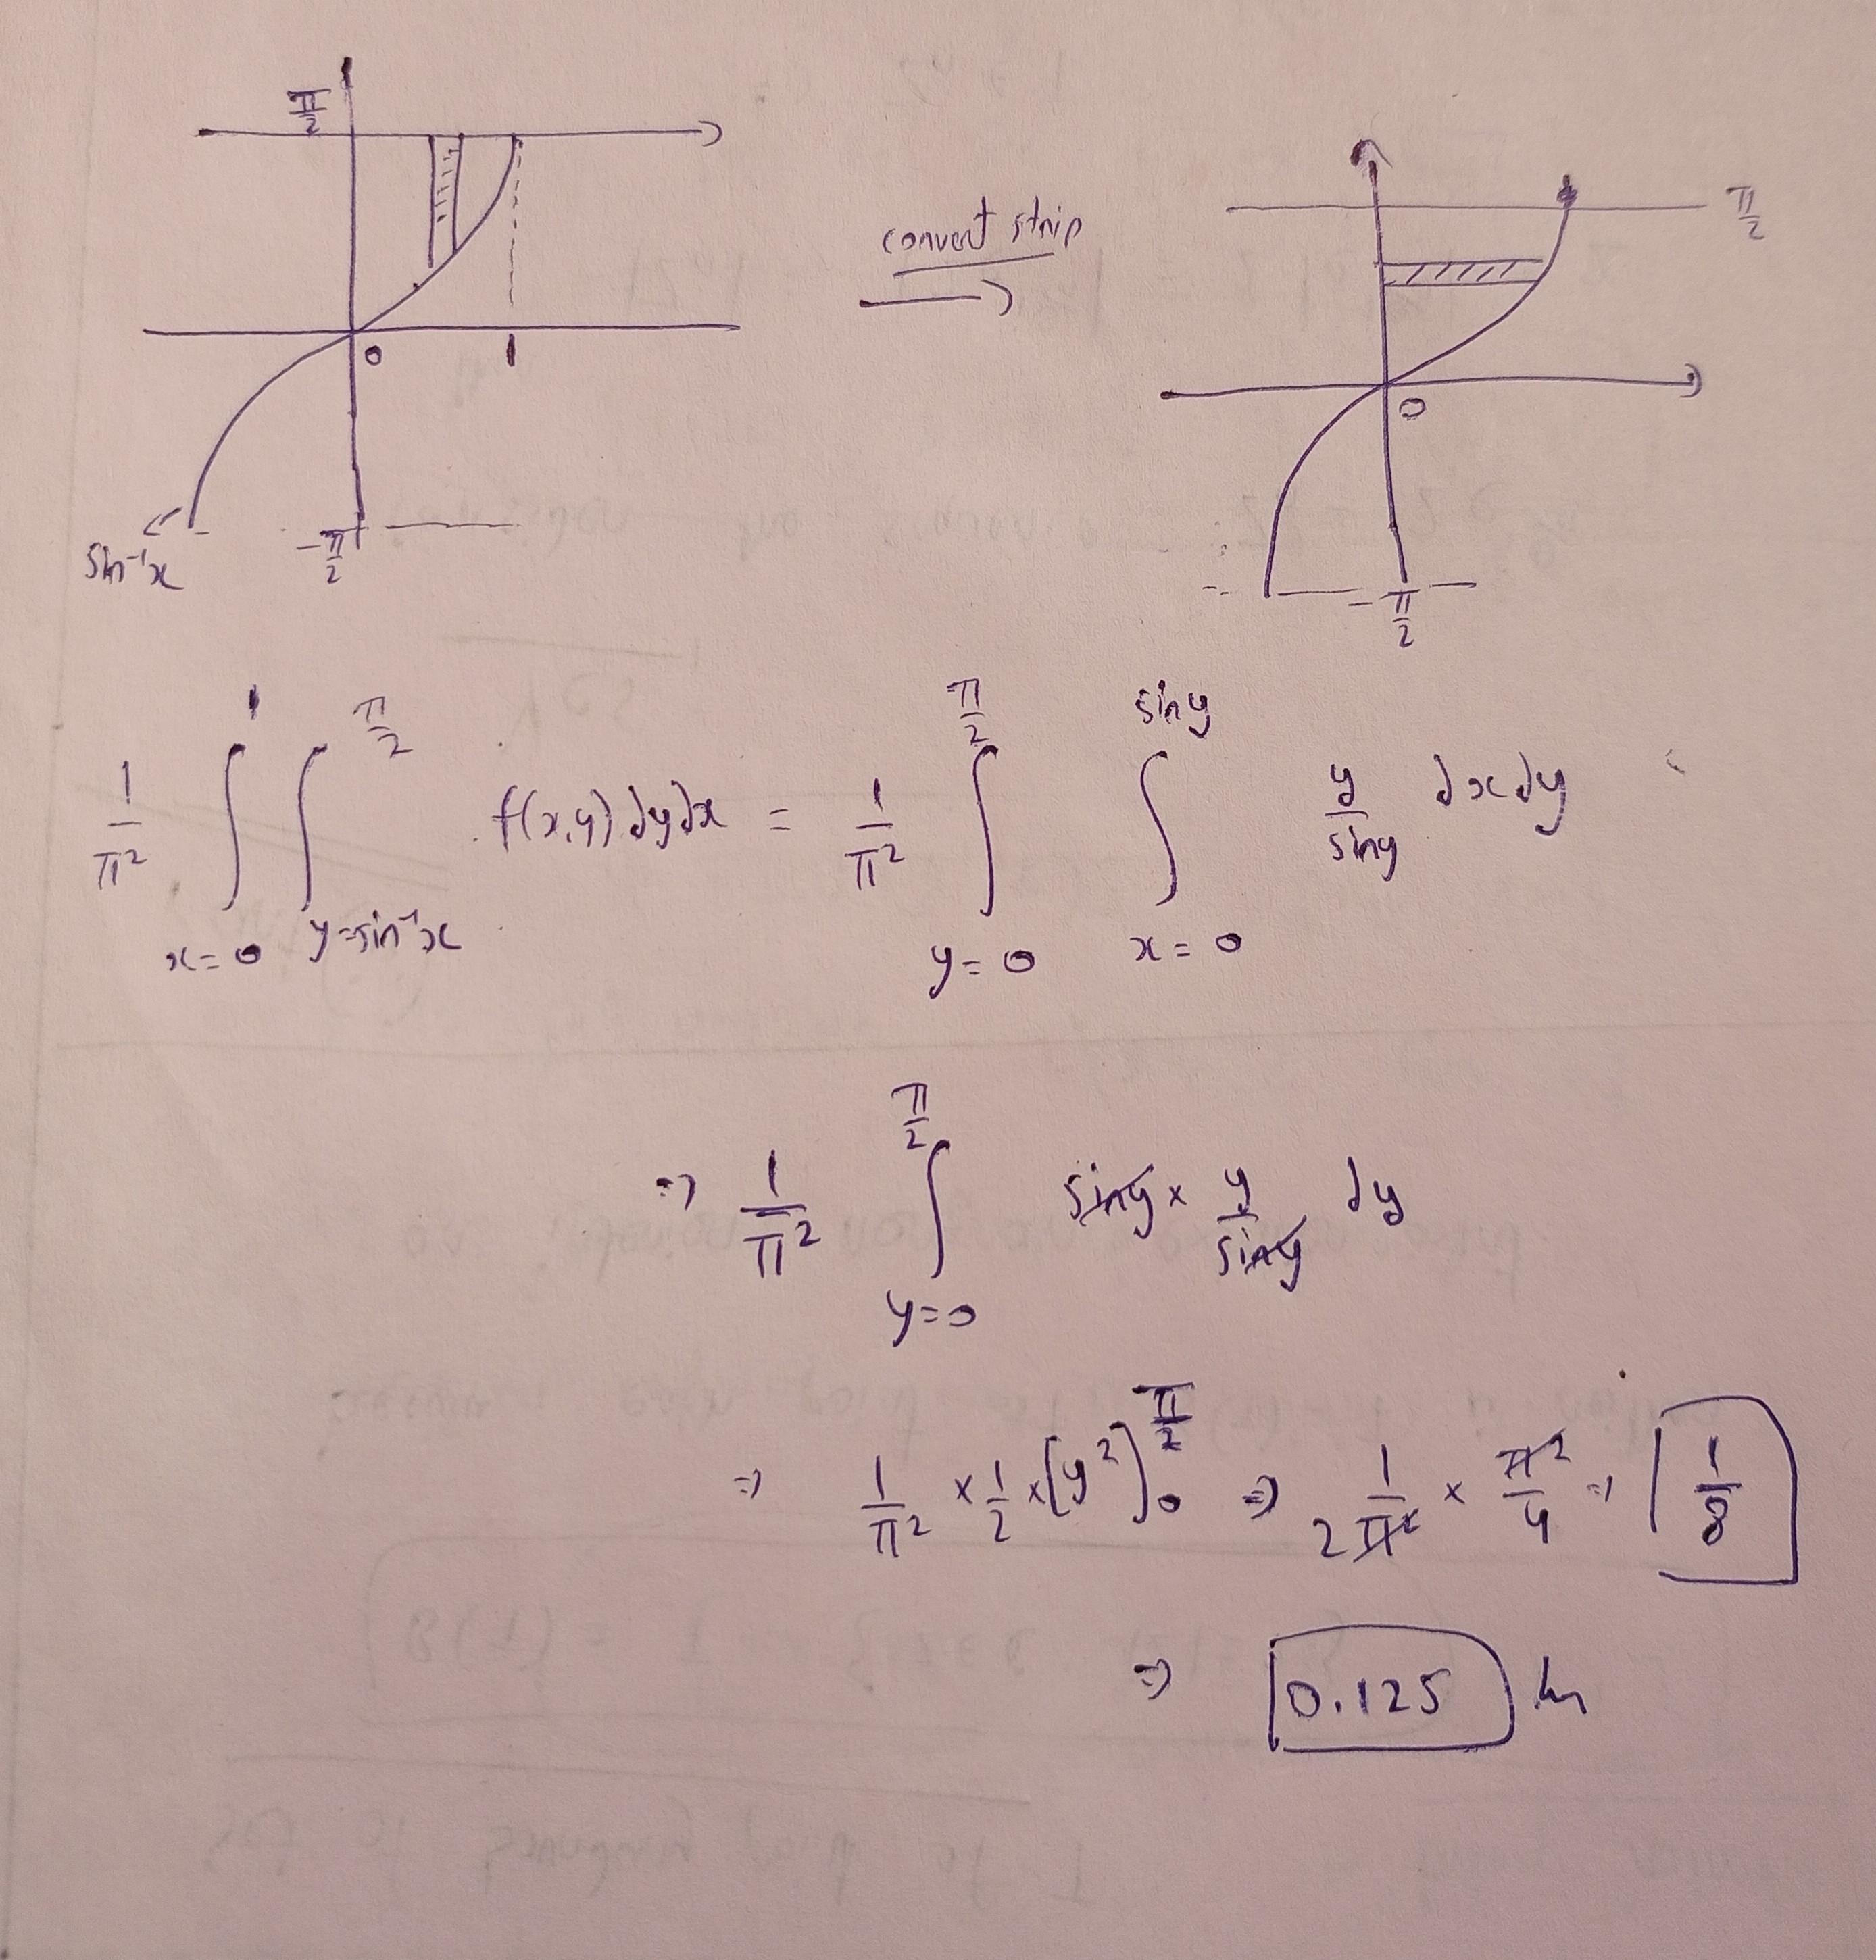 π/2
0 1
sin⁻¹x
-π/2
convert strip
→
π/2
0
-π/2
1/π² ∫_{x=0}^{1} ∫_{y=sin⁻¹x}^{π/2} f(x,y) dydx = 1/π² ∫_{y=0}^{π/2} ∫_{x=0}^{siny} y/siny dxdy
⇒ 1/π² ∫_{y=0}^{π/2} siny × y/siny dy
⇒ 1/π² × 1/2 × [y²]_0^{π/2} ⇒ 1/2π² × π²/4 ⇒ 1/8
⇒ 0.125